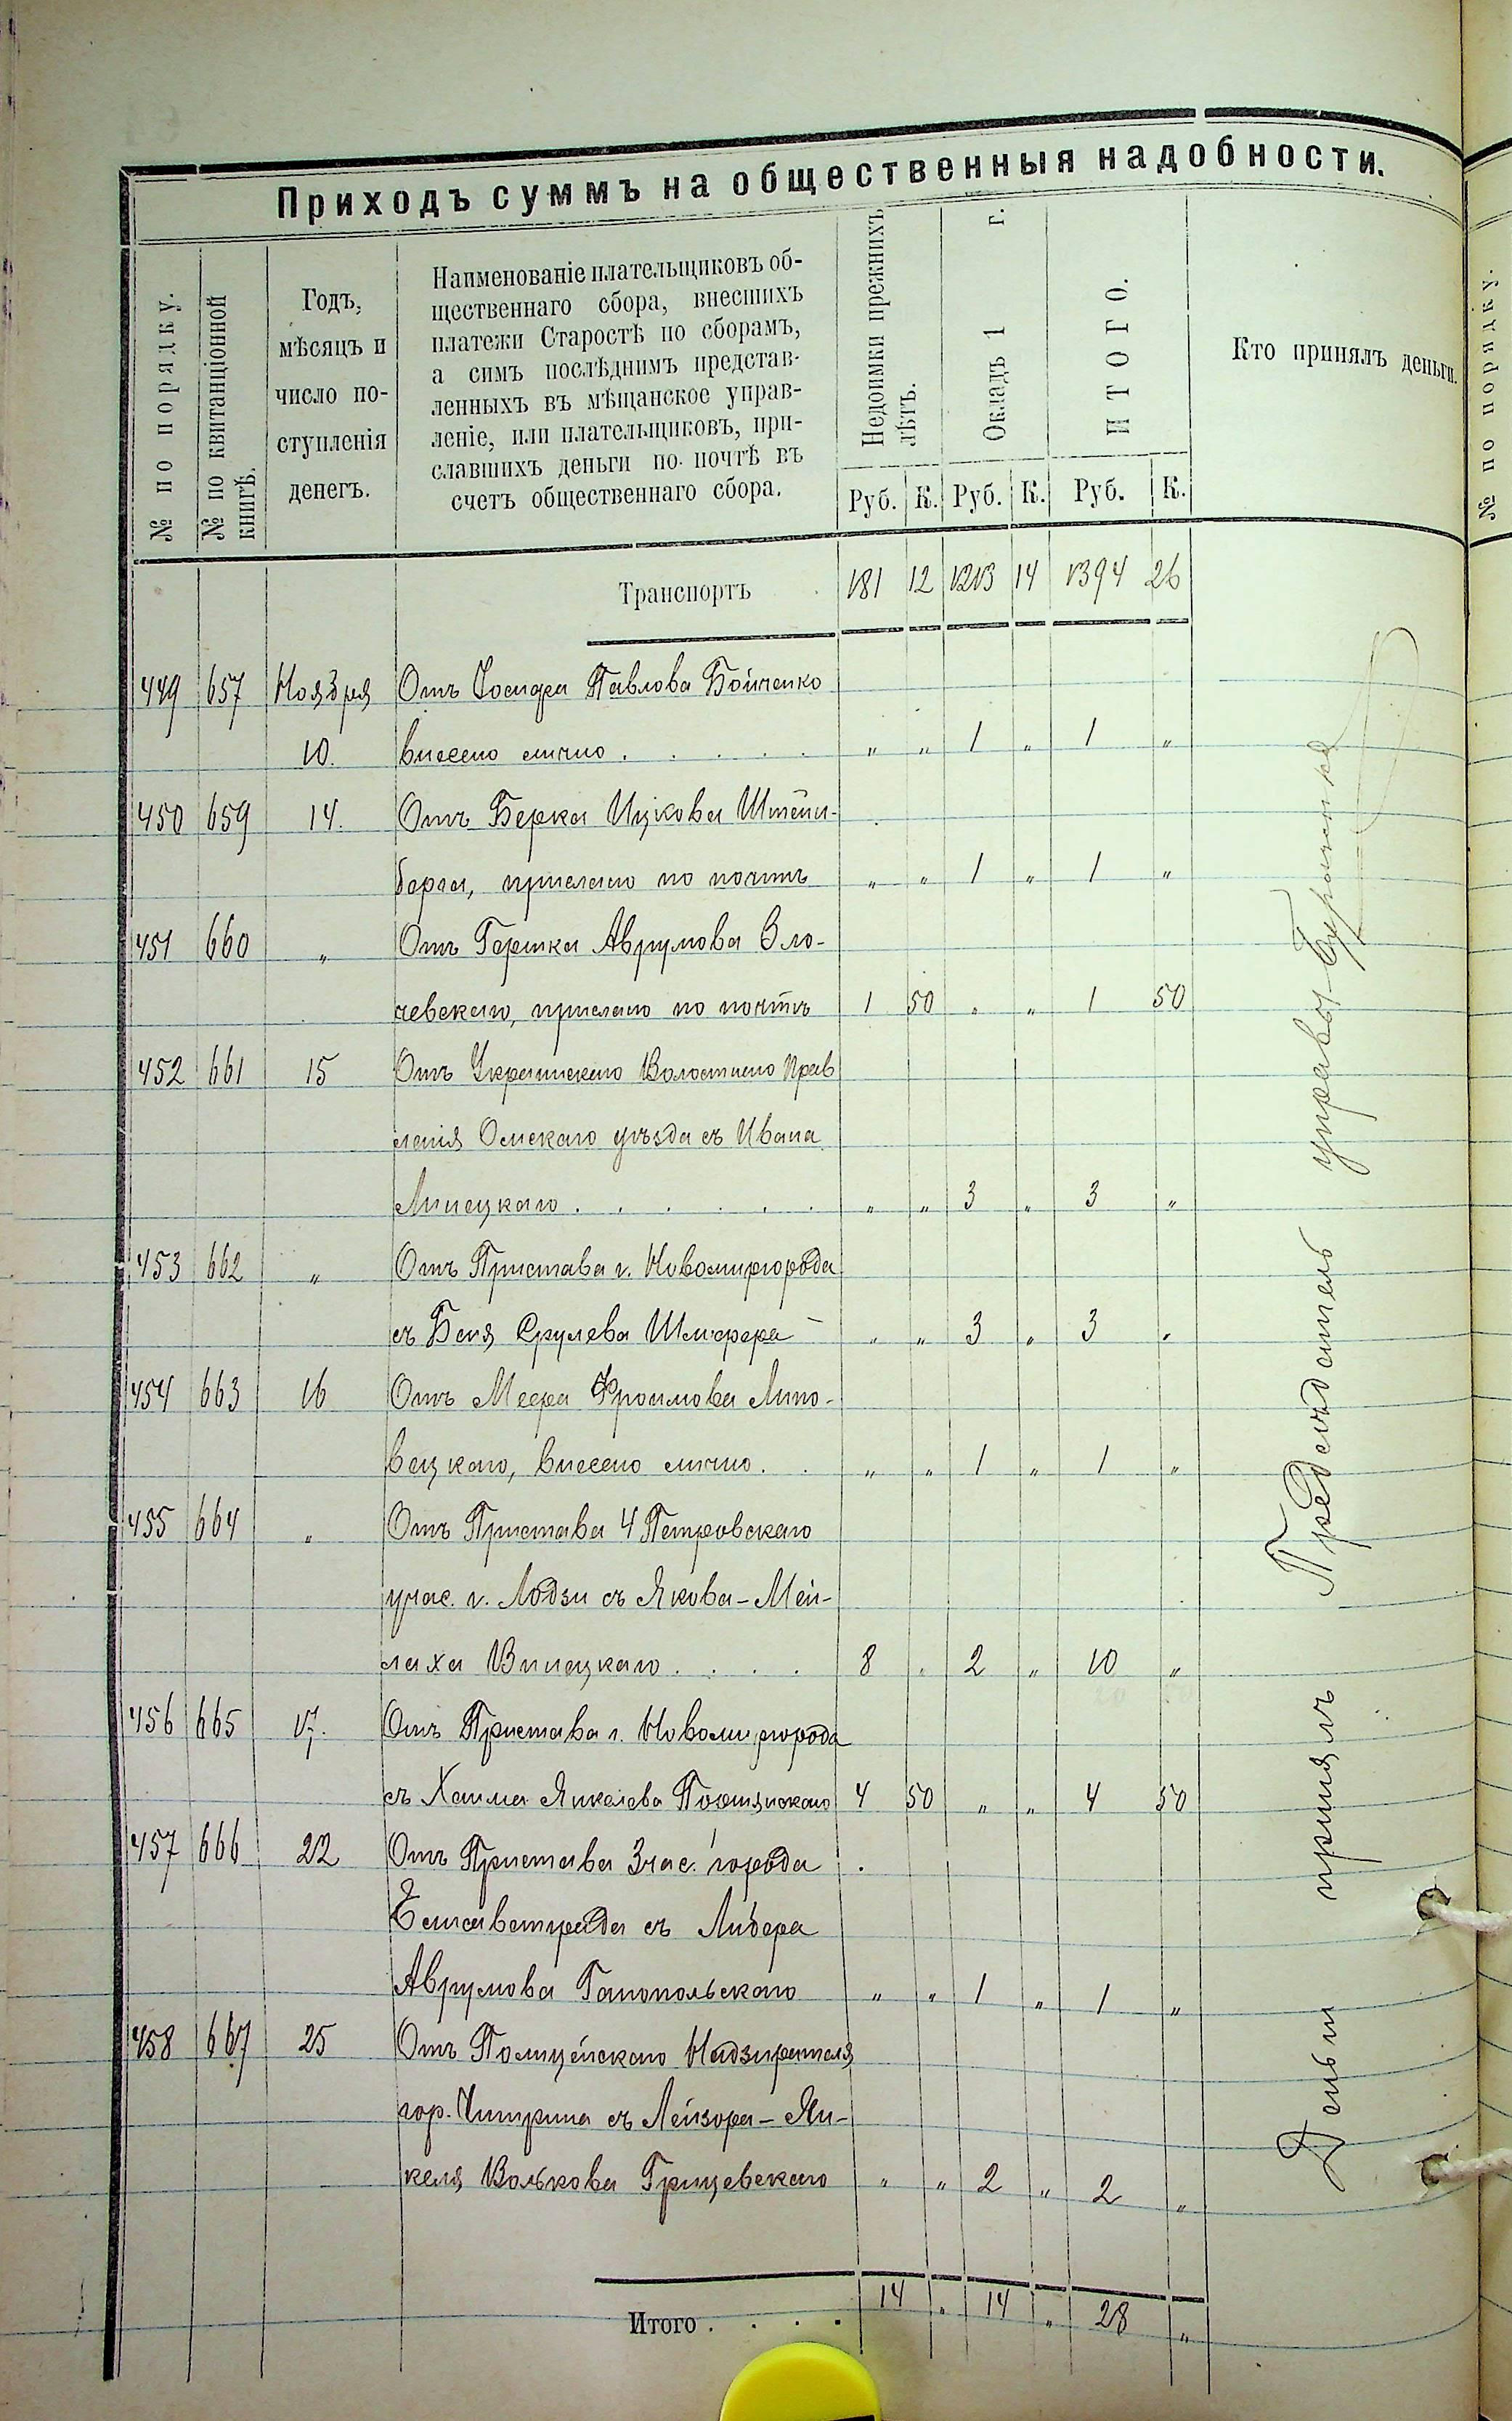 Приходъ суммъ на общественныя надобности.
№ по порядку.
№ по квитанціонной книгѣ.
Годъ, мѣсяцъ и число поступленія денегъ.
Наименованіе плательщиковъ об-
щественнаго сбора, внесшихъ
платежи Старостѣ по сборамъ,
а симъ послѣднимъ представ-
ленныхъ въ мѣщанское управ-
леніе, или плательщиковъ, при-
славшихъ деньги по почтѣ въ
счетъ общественнаго сбора.
Недоимки прежнихъ лѣтъ.
Окладъ 1 г.
ИТОГО.
Кто принялъ деньги.
Руб. К. Руб. К. Руб. К.
Транспортъ 181 12 1213 14 1394 26
449 657 Ноября Отъ Іосифа Павлова Бойченко
10. внесено лично . . . . . „ „ 1 „ 1 „
450 659 14. Отъ Берка Ицкова Штейн-
берга, прислано по почтѣ „ „ 1 „ 1 „
451 660 „ Отъ Гершка Аврумова Зло-
чевскаго, прислано по почтѣ 1 50 „ „ 1 50
452 661 15 Отъ Украинскаго Волостного Прав
ленія Омскаго уѣзда съ Ивана
Липецкаго . . . . . . „ „ 3 „ 3 „
453 662 „ Отъ Пристава г. Новомиргорода
съ Беня Срулева „ „ 3 „ 3 „
454 663 16 Отъ Меера Фроимова Липо-
вецкаго, внесено лично . . „ „ 1 „ 1 „
455 664 „ Отъ Пристава 4 Петровскаго
учас. г. Лодзи съ Якова-Мей-
лаха Виницкаго . . . . 8 „ 2 „ 10 „
456 665 17. Отъ Пристава г. Новомиргорода
съ Хаима Янкелева 4 50 „ „ 4 50
457 666 22 Отъ Пристава 3 час. города
Елисаветграда съ Либера
Аврумова Ганопольскаго „ „ 1 „ 1 „
458 667 25 Отъ Полицейскаго Надзирателя
гор. Чигирина съ Лейзора-Ян-
келя Волькова Грицевскаго „ „ 2 „ 2 „
Итого . . . . 14 „ 14 „ 28 „
Деньги принялъ Предсѣдатель управы
№ по порядку.